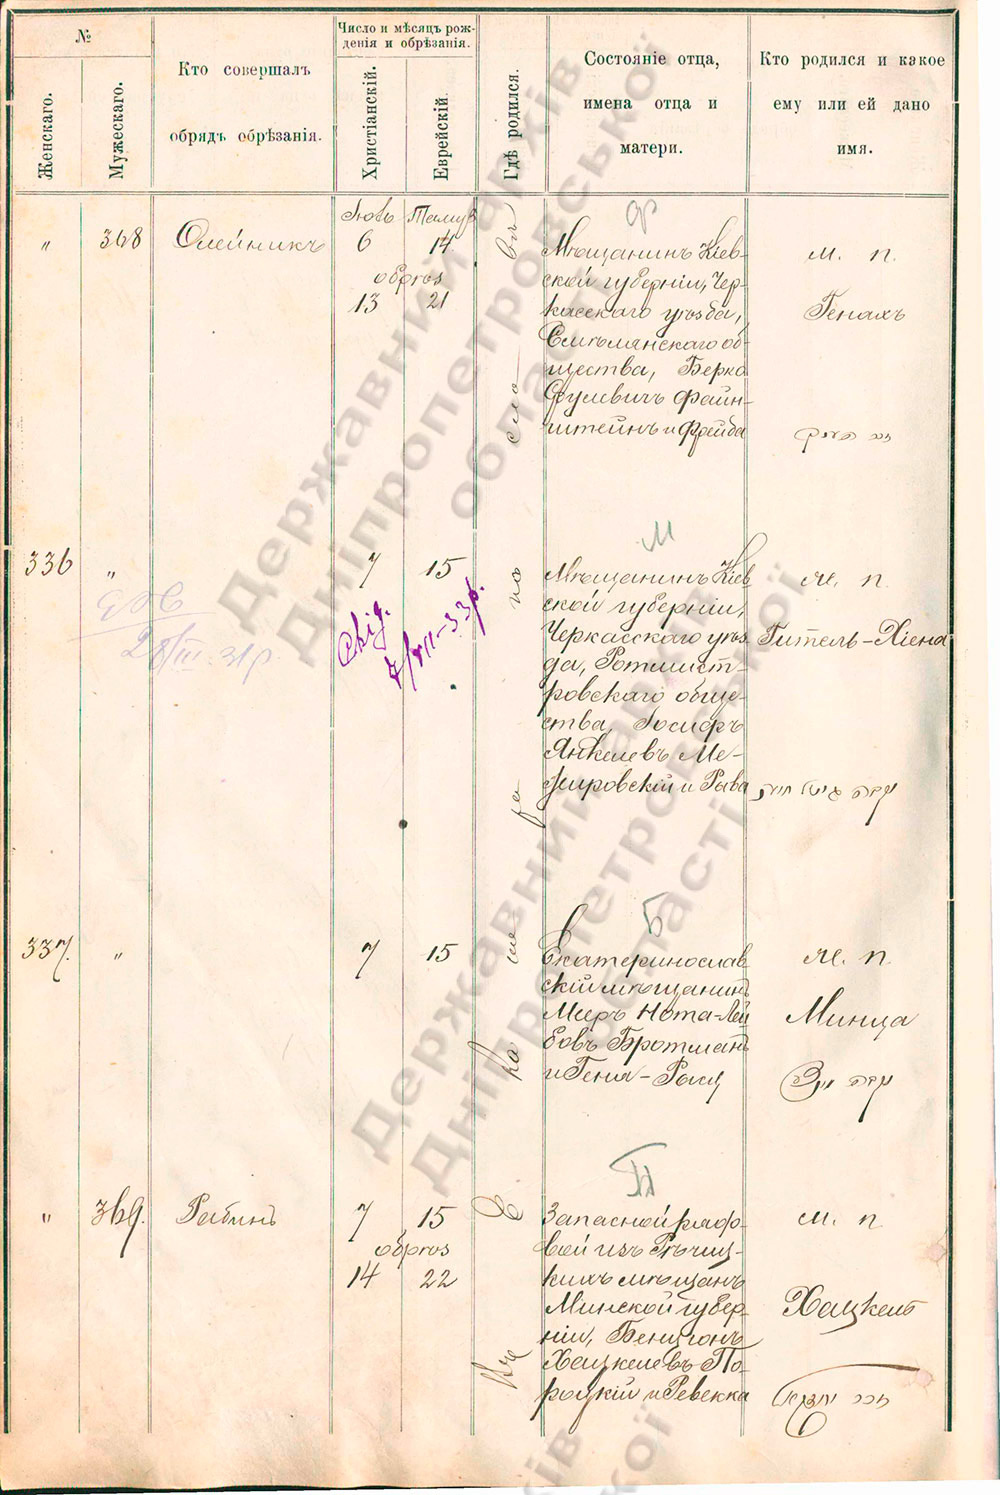 №
Женскаго.
Мужескаго.
Кто совершалъ
обрядъ обрѣзанія.
Число и мѣсяцъ рож-
денія и обрѣзанія.
Христіанскій.
Еврейскій.
Гдѣ родился.
Состояніе отца,
имена отца и
матери.
Кто родился и какое
ему или ей дано
имя.
"
368
Олейникъ
Іюль Тамуз
6 14
обрѣз
13 21
Мѣщанинъ Кіев-
ской губерніи, Чер-
касскаго уѣзда,
Смѣлянскаго об-
щества, Берко
Сруlевичъ Файн-
штейнъ и Фрейда
м. п.
Генахъ
Ф
336
"
7 15
28/III. 31 р.
7/VII-33 р.
М
Мѣщанинъ Кіев
ской губерніи,
Черкасскаго уѣз-
да, Ротмист-
ровскаго обще-
ства, Іосифъ
Янкелевъ Ме-
жировскій и Рыва
ж. п.
Гитель-Хіена
337.
"
7 15
Б
Екатеринослав
скій мѣщанинъ
Мееръ Нота-Лей
бовъ Бротманъ
и Геня-Рася
ж. п.
Минца
"
369.
Рабинъ
7 15
обрѣз
14 22
П
Запасной рядо-
вой изъ Рѣчиц-
кихъ мѣщанъ
Минской губер-
ніи, Бенціонъ
Хацкелевъ По-
роцкій и Ревекка
м. п.
Хацкель
въ Екатеринославѣ
Державний архів
Дніпропетровської
області
Державний архів
Дніпропетровської
області